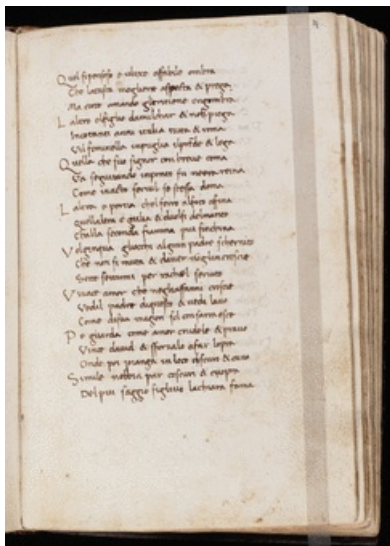 Quel si pensoso e ulixe affabile ombra
Che la casta mogliere aspetta & prega
Ma circe amando gliel ritiene e ingombra
L altro el figluo damilchar & nol piega
In cotanti anni italia tutta & roma
Vil feminella in puglia il prende & lega
Quella che suo signor con breve coma
Va seguitando in ponto fu reina
Come in acto servil se stessa doma
L altra e portia chel ferro al foco afina
quellaltra e giulia & duolsi del marito
Challa seconda fiamma piu sinchina
Volgi in qua gliocchi al gran padre schernito
Che non si muta & daver nogli incresce
Sette setteanni per rachel servito
Vivace amor che negliaffanni cresce
Vedil padre di questo & vedi lavo
Come disua magion sol con sarra esce
Po guarda come amor crudele & pravo
Vince david & sforzalo afar lopra
Onde poi pianga in loco obscuro & cavo
Simile nebbia par coscuri & cuopra
Del piu saggio figliuo lachiara fama